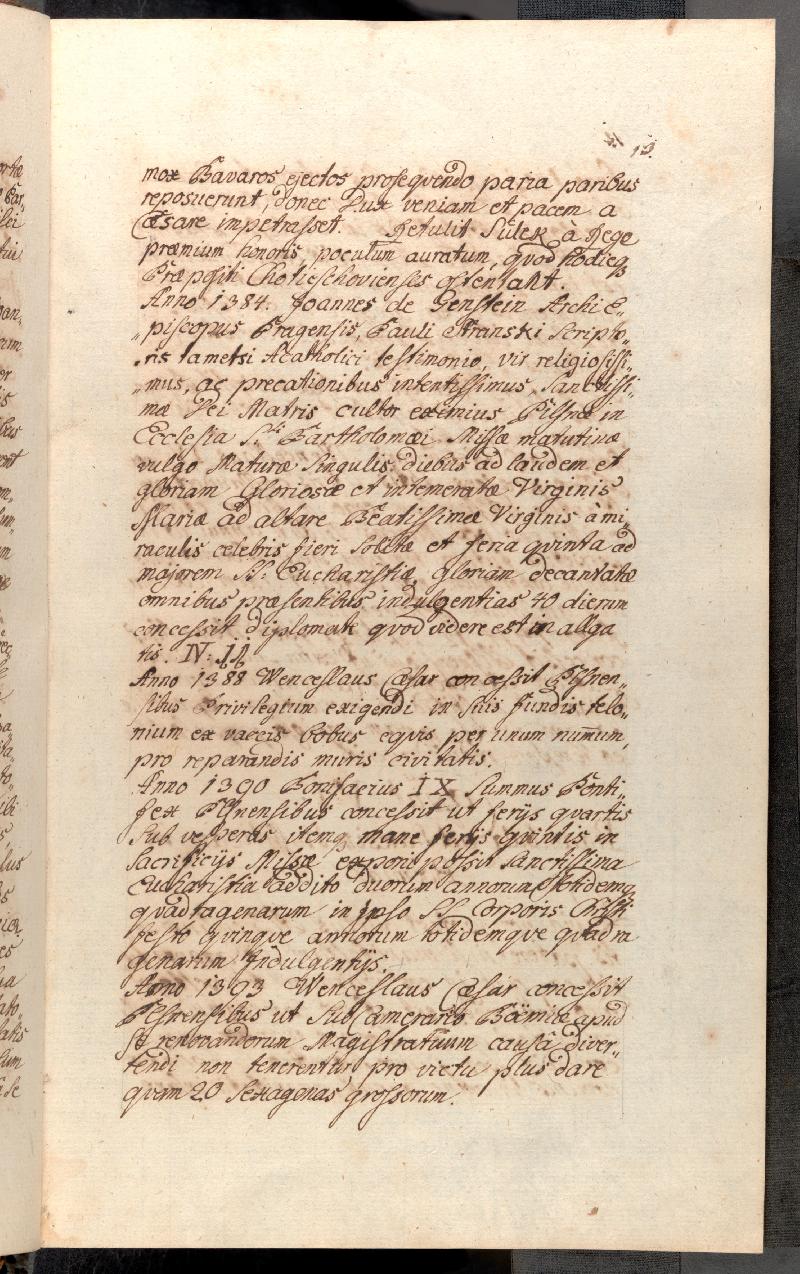 13.
mox Bavaros ejectos prosequendo paria paribus
reposuerunt, donec Dux veniam et pacem a
Cæsare impetrasset. Retulit Sulek à Rege
præmium honoris, poculum auratum, quod hodieq
Præpositi Chotieschovienses ostentant.
Anno 1384. Joannes de Genstein Archi E„
„piscopus Pragensis, Pauli Stranski Scripto„
„ris tametsi Acatholici testimonio, vir religiosissi„
„mus, ac precationibus intentissimus, Sanctissi„
mæ Dei Matris cultor eximius Pilsnæ in
Ecclesia S.ti Bartholomæi Missæ matutinæ
vulgo Maturæ singulis diebus ad laudem et
gloriam Gloriosæ et intemeratæ Virginis
Mariæ ad altare Beatissimæ Virginis à mi„
raculis celebris fieri solitæ et feria quinta ad
majorem SS. Eucharistiæ gloriam decantatæ
omnibus præsentibus indulgentias 40 dierum
concessit diplomate quod videre est in alliga
tis. IV:
Anno 1388 Wenceslaus Cæsar concessit Pilsnen„
sibus Privilegium exigendi in suis fundis telo„
nium ex vaccis bobus equis per unum numum,
pro reparandis muris civitatis.
Anno 1390 Bonifacius IX Summus Ponti„
fex Pilsnensibus concessit ut ferijs quartis
sub vesperas itemq mane ferijs quintis in
Sacrificijs Missæ exponi possit Sanctissima
Eucharistia addito duorum annorum totidemq
quadragenarum in ipso SS. Corporis Christi
festo quinque annorum totidemque quadra
genarum Indulgentijs.
Anno 1393 Wenceslaus Cæsar concessit
Pilsnensibus ut Sub Camerario Boëmiæ apud
se renovandorum Magistratuum causâ diver„
tendi non tenerentur pro victu plus dare
quam 20 sexagenas grossorum.